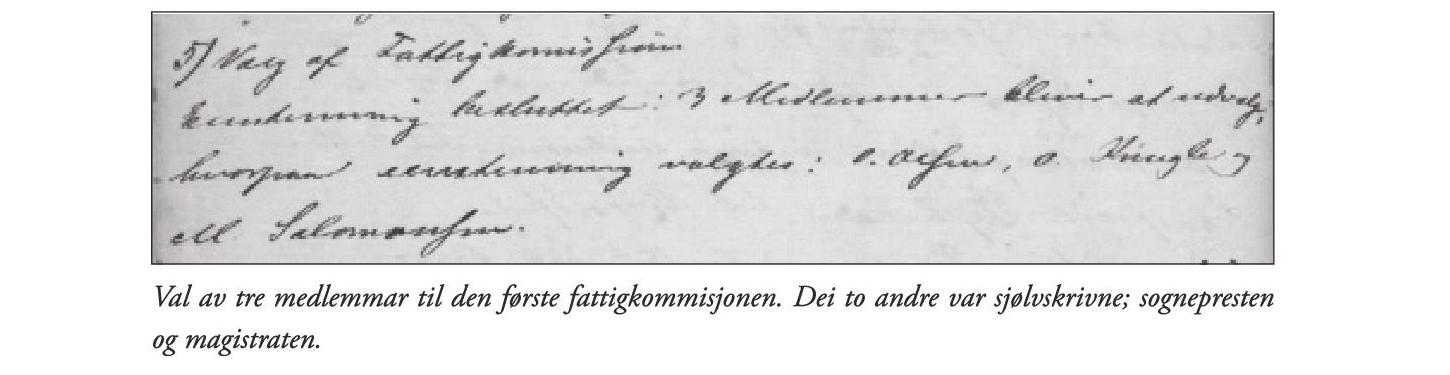 5) Valg af Fattigkommisssion
Eenstemmig besluttet: 3 Medlemmer bliver at udvælg,
hvorpaa eenstemmig valgtes: O. Olsen, O. Ringle og
M. Salomonsen.
Val av tre medlemmar til den første fattigkommisjonen. Dei to andre var sjølvskrivne; sognepresten
og magistraten.